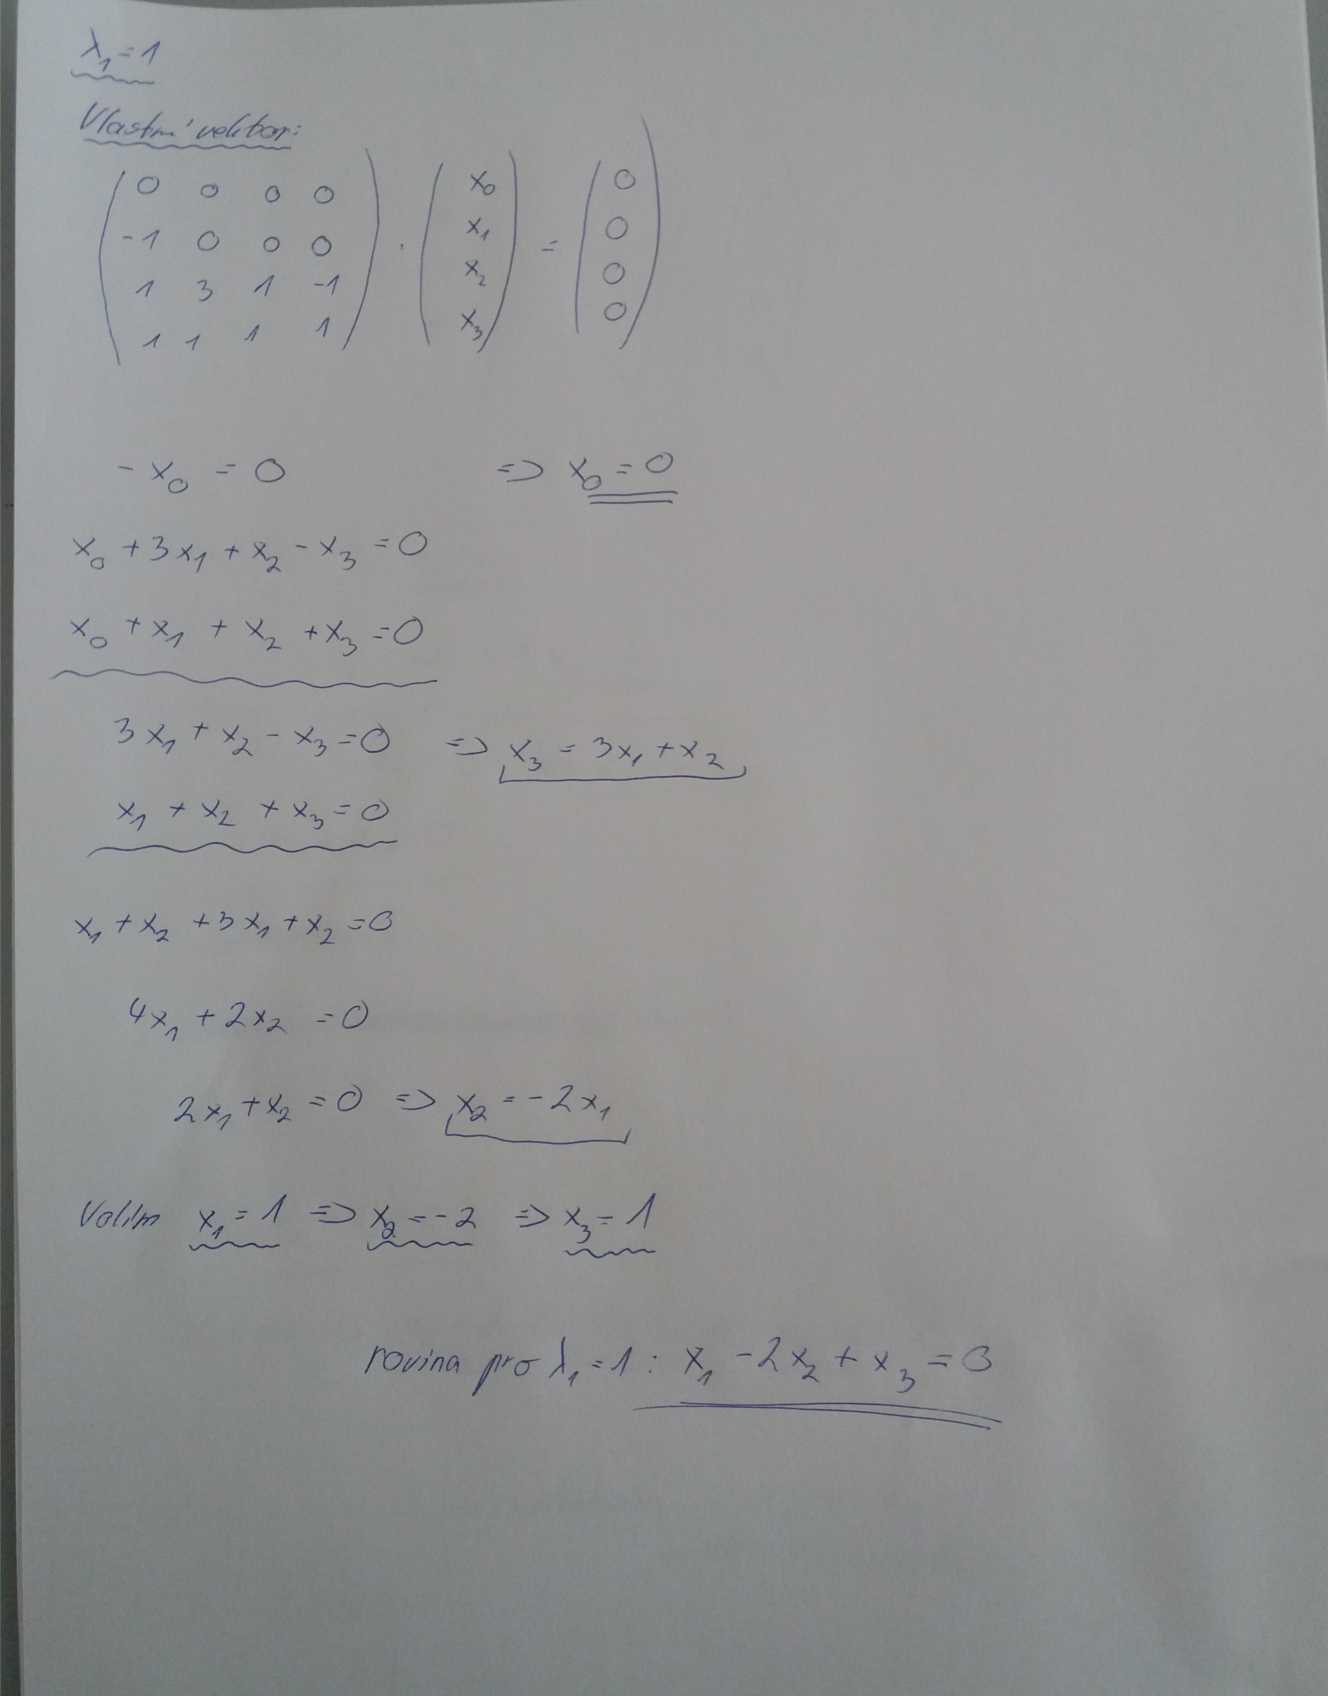 λ₁ = 1
Vlastní vektor:
( 0 0 0 0 ) ( x₀ ) ( 0 )
( -1 0 0 0 ) · ( x₁ ) = ( 0 )
( 1 3 1 -1 ) ( x₂ ) ( 0 )
( 1 1 1 1 ) ( x₃ ) ( 0 )
- x₀ = 0 => x₀ = 0
x₀ + 3x₁ + x₂ - x₃ = 0
x₀ + x₁ + x₂ + x₃ = 0
3x₁ + x₂ - x₃ = 0 => x₃ = 3x₁ + x₂
x₁ + x₂ + x₃ = 0
x₁ + x₂ + 3x₁ + x₂ = 0
4x₁ + 2x₂ = 0
2x₁ + x₂ = 0 => x₂ = -2x₁
Volím x₁ = 1 => x₂ = -2 => x₃ = 1
rovina pro λ₁ = 1 : x₁ - 2x₂ + x₃ = 0